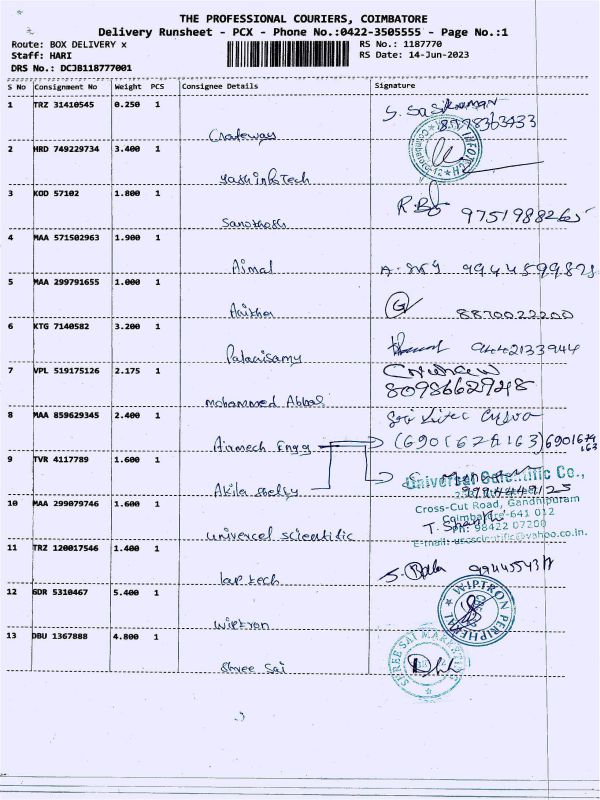 THE PROFESSIONAL COURIERS, COIMBATORE
Delivery Runsheet - PCX - Phone No.:0422-3505555 - Page No.:1
Route: BOX DELIVERY x RS No.: 1187770
Staff: HARI RS Date: 14-Jun-2023
DRS No.: DCJB118777001
S No Consignment No Weight PCS Consignee Details Signature
1 TRZ 31410545 0.250 1
S. Sasikumar
8978363433
2 HRD 749229734 3.400 1
INFOTECH
Coimbatore-12
yash infotech
3 KOD 57102 1.800 1
9751988265
Santhosh
4 MAA 571502963 1.900 1
Ajmal
5 MAA 299791655 1.000 1
8870022200
6 KTG 7140582 3.200 1
Palanisamy 9442133944
7 VPL 519175126 2.175 1
mohammed Abbas 8098662948
8 MAA 859629345 2.400 1
Airmech Engg
9 TVR 4117789 1.600 1
Akila shelfy
Universal Scientific Co.,
Cross-Cut Road, Gandhipuram
Coimbatore-641 012
98422 07200
10 MAA 299079746 1.600 1
univercel scientific
E-mail: uscscientific@yahoo.co.in.
11 TRZ 120017546 1.400 1
lap tech
12 GDR 5310467 5.400 1
WIPTRON PERIPHERAL
wiptron
13 DBU 1367888 4.800 1
SHREE SAI MARKETING
shree sai